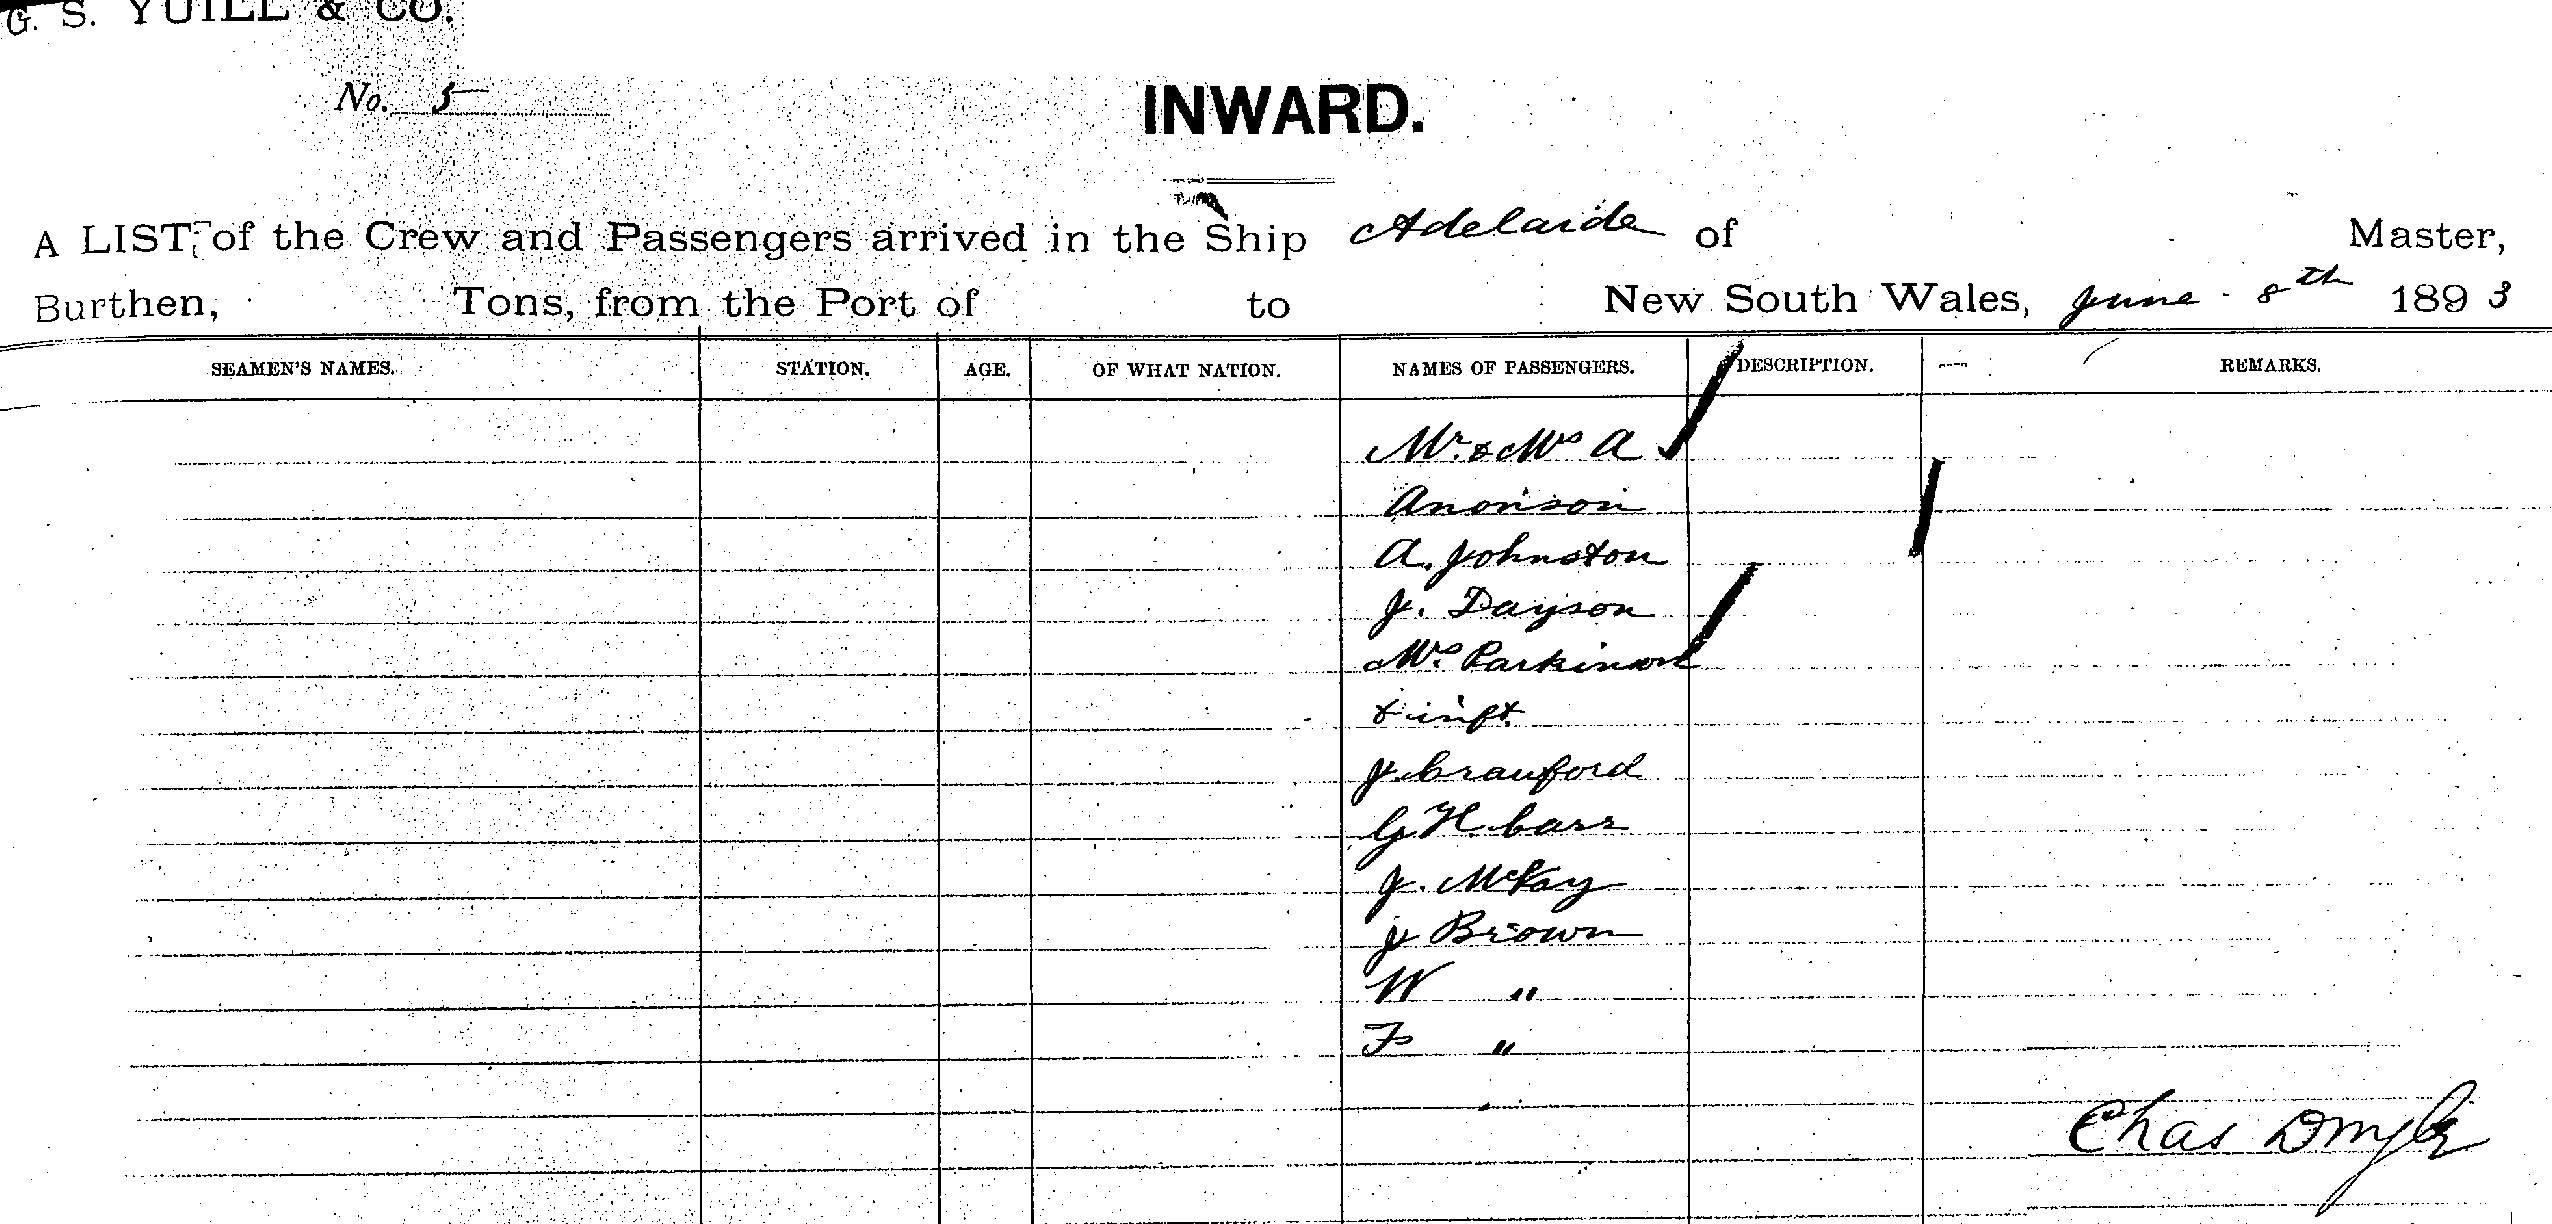 G. S. YUILL & CO.
No. 5
INWARD.
A LIST, of the Crew and Passengers arrived in the Ship Adelaide of Master,
Burthen, Tons, from the Port of to New South Wales, June 8th 1893
SEAMEN'S NAMES. STATION. AGE. OF WHAT NATION. NAMES OF PASSENGERS. DESCRIPTION. REMARKS.
Mr. & Mrs A
Anonson
A. Johnston
J. Dayson
Mrs. Parkinson
& inft.
J. Crawford
G H Carr
J. McKay
J Brown
W "
F "
Chas